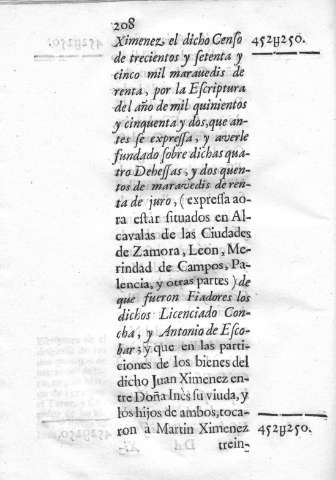 208
Ximenez, el dicho Censo
de trecientos y setenta y
cinco mil marauedis de
renta, por la Escriptura
del año de mil quinientos
y cinquenta y dos, que an-
tes se expressa, y averle
fundado sobre dichas qua-
tro Dehessas, y dos quen-
tos de maravedis de ren-
ta de juro, (expressa ao-
ra estar situados en Al-
cavalas de las Ciudades
de Zamora, Leon, Me-
rindad de Campos, Pa-
lencia, y otras partes) de
que fueron Fiadores los
dichos Licenciado Con-
cha, y Antonio de Esco-
bar; y que en las parti-
ciones de los bienes del
dicho Juan Ximenez en-
tre Doña Inès su viuda, y
los hijos de ambos, toca-
ron à Martin Ximenez
trein-
452y250.
452y250.